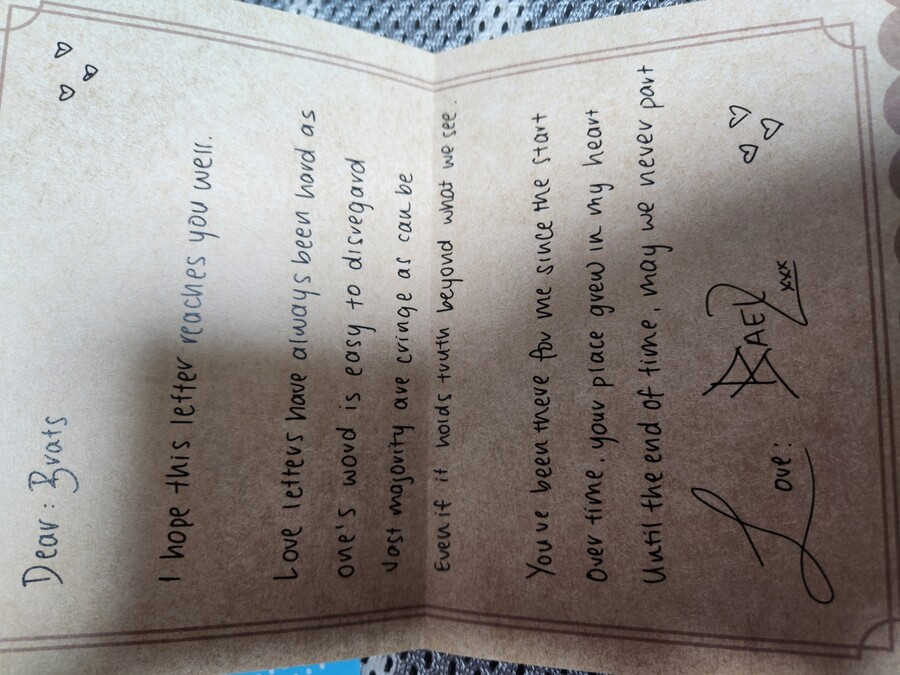 Dear : Brats
I hope this letter reaches you well.
Love letters have always been hard as
one's word is easy to disregard
Vast majority are cringe as can be
Even if it holds truth beyond what we see.
You've been there for me since the start
Over time, your place grew in my heart
Until the end of time, may we never part
Love: BAEL
xxx